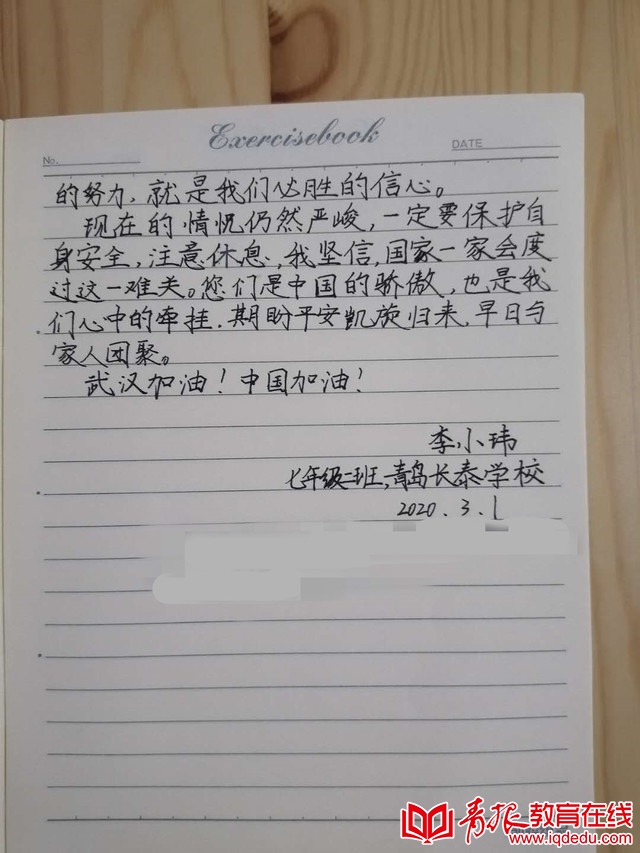 Exercisebook
No.
DATE
的努力，就是我们必胜的信心。
现在的情况仍然严峻，一定要保护自
身安全，注意休息，我坚信，国家一家会度
过这一难关。您们是中国的骄傲，也是我
们心中的牵挂．期盼平安凯旋归来，早日与
家人团聚。
武汉加油！中国加油！
李小玮
七年级二班，青岛长泰学校
2020．3．1
青报教育在线
www.iqdedu.com